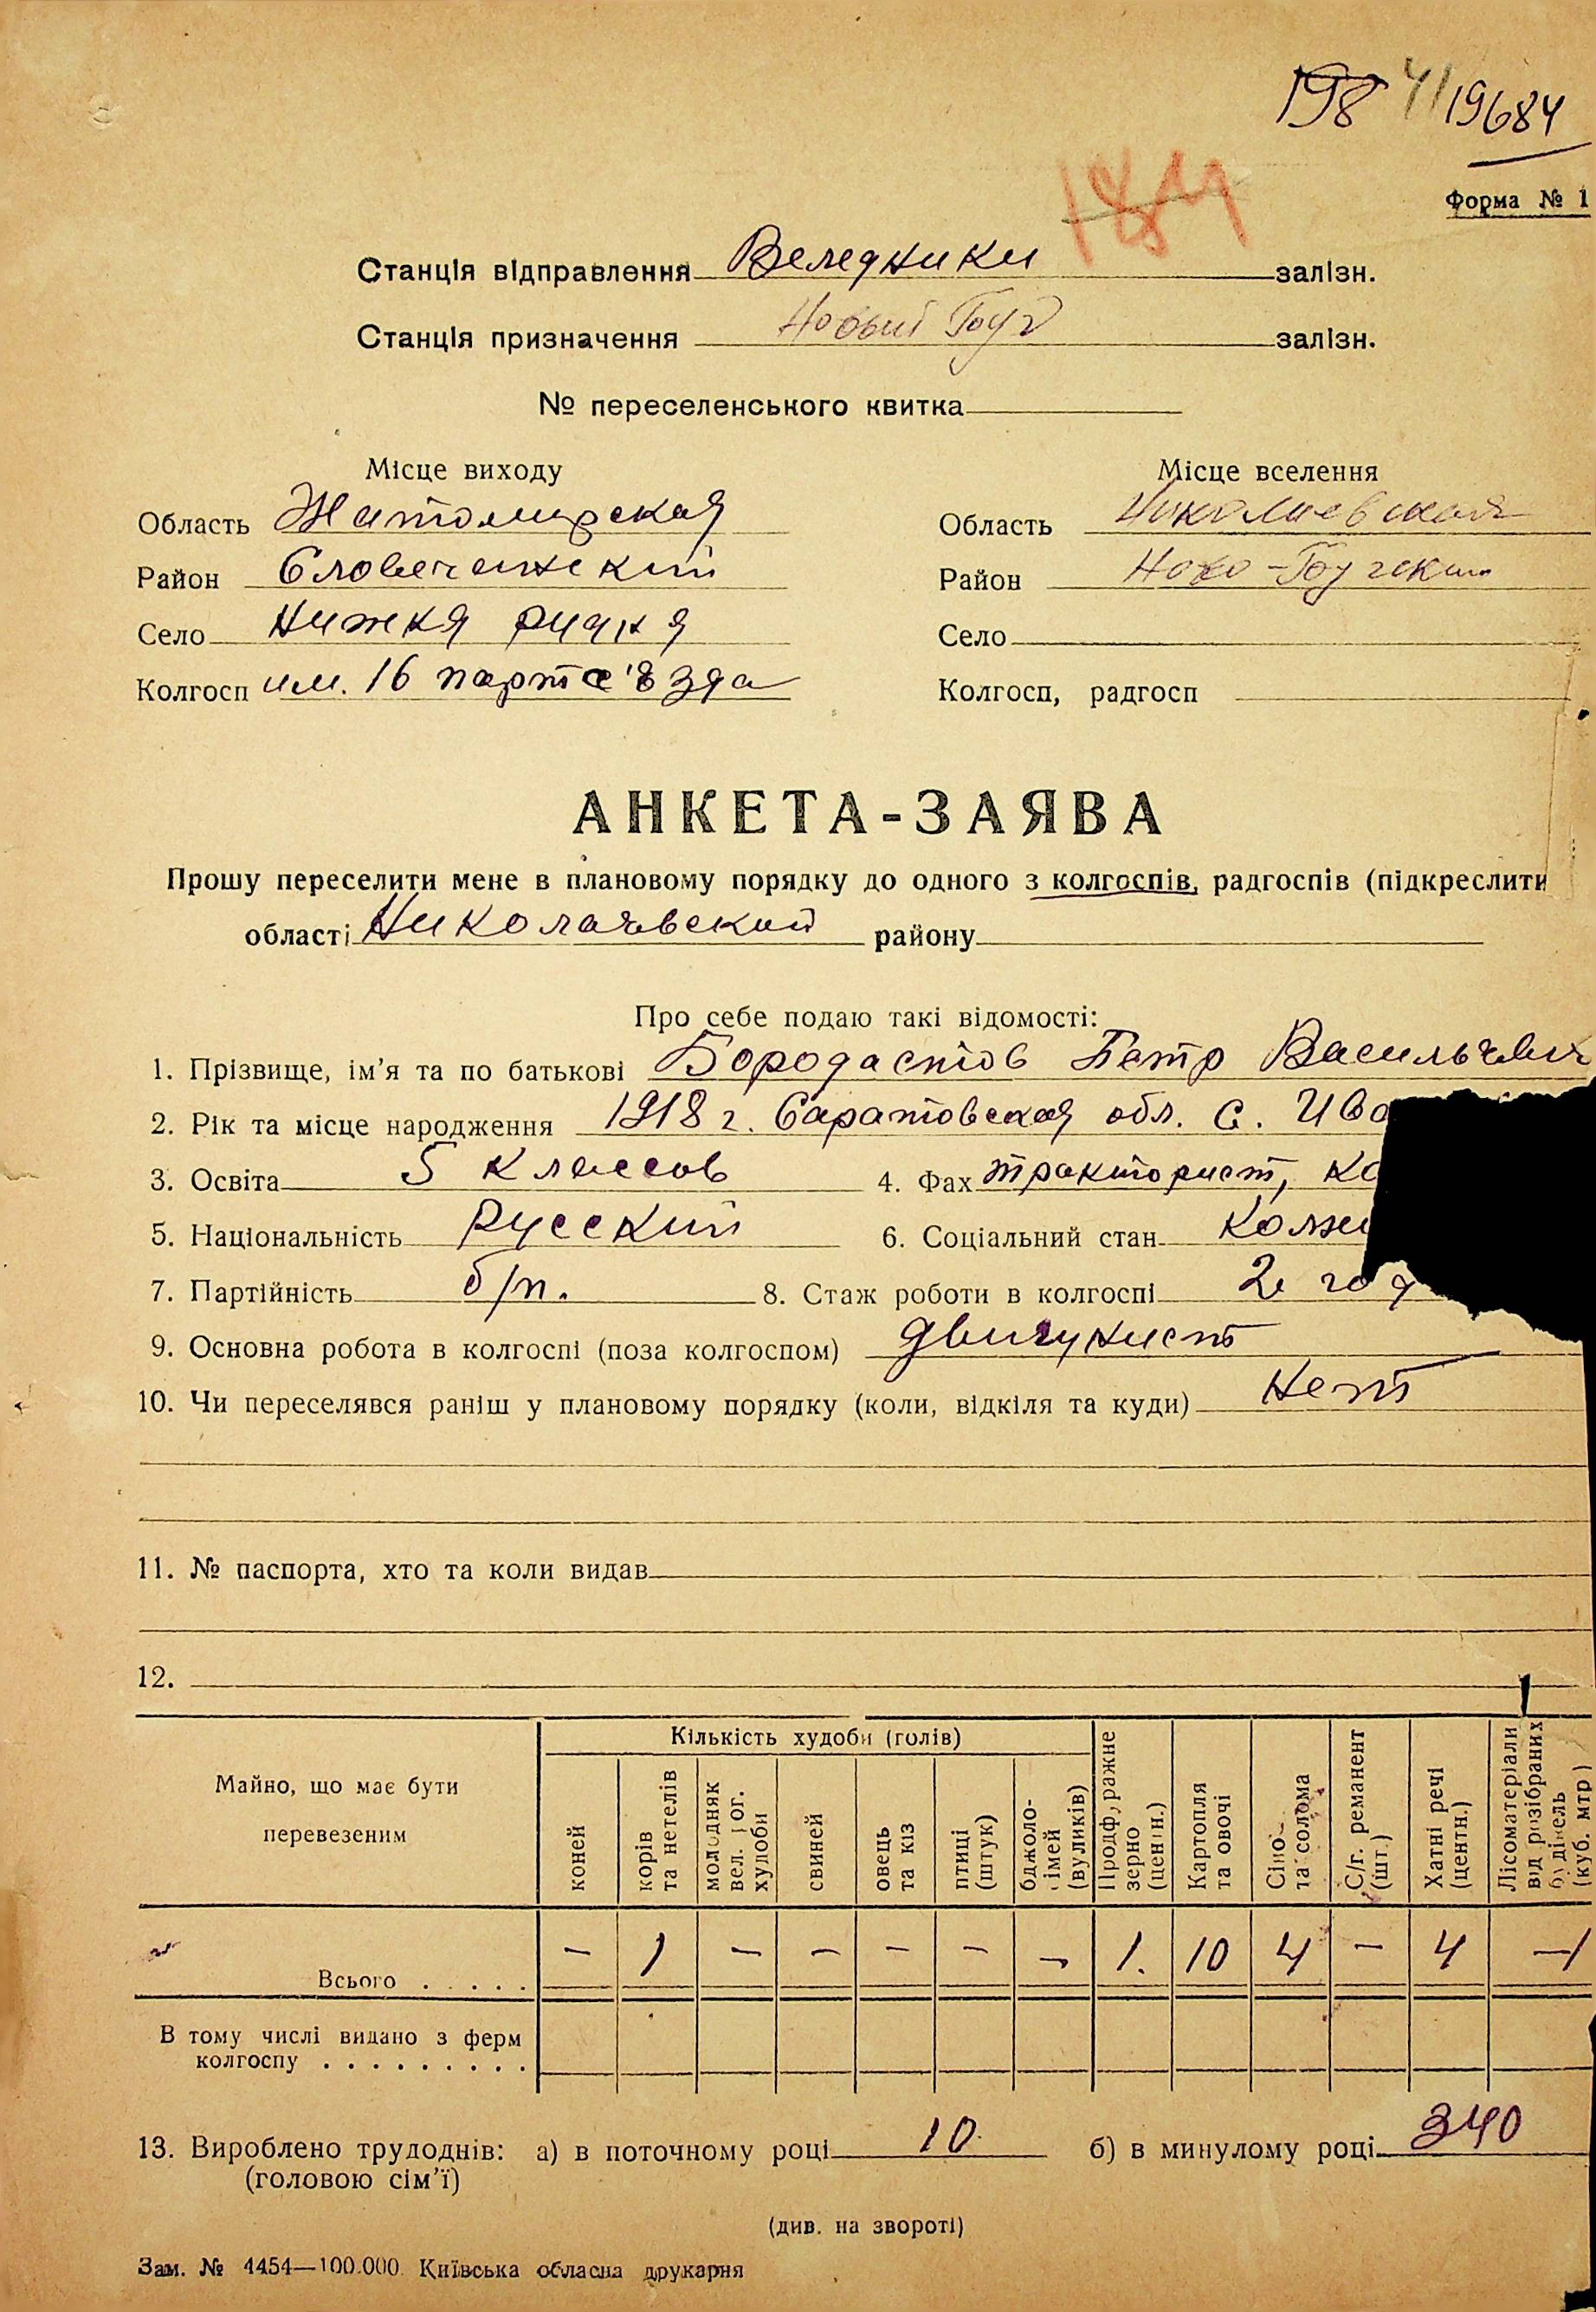 198 41 19684
184
Форма № 1
Станція відправлення Веледники залізн.
Станція призначення Новый Буг залізн.
№ переселенського квитка
Місце виходу Місце вселення
Область Житомирская Область Николаевская
Район Словечанский Район Ново-Бугский
Село Нижня рудня Село
Колгосп им. 16 партс'ъзда Колгосп, радгосп
АНКЕТА-ЗАЯВА
Прошу переселити мене в плановому порядку до одного з колгоспів, радгоспів (підкреслити
області Николаевский району
Про себе подаю такі відомості:
1. Прізвище, ім'я та по батькові Бородастов Петр Васильевич
2. Рік та місце народження 1918 г. Саратовская обл. с. Ива
3. Освіта 5 классов 4. Фах тракторист, ко
5. Національність Русский 6. Соціальний стан
7. Партійність б/п. 8. Стаж роботи в колгоспі 2 год
9. Основна робота в колгоспі (поза колгоспом) двигунист
10. Чи переселявся раніш у плановому порядку (коли, відкіля та куди) Нет
11. № паспорта, хто та коли видав
12.
Майно, що має бути перевезеним
Кількість худоби (голів)
коней
корів та нетелів
молодняк вел. рог. худоби
свиней
овець та кіз
птиці (штук)
бджолосімей (вуликів)
Продф,ражне зерно (центн.)
Картопля та овочі
Сіно та солома
С/г. реманент (шт.)
Хатні речі (центн.)
Лісоматеріали від розібраних будівель (куб. мтр)
Всього . . . . . – 1 – – – – – 1. 10 4 – 4 –
В тому числі видано з ферм
колгоспу . . . . . . . . .
13. Вироблено трудоднів: а) в поточному році 10 б) в минулому році 340
(головою сім'ї)
(див. на звороті)
Зам. № 4454—100.000 Київська обласна друкарня